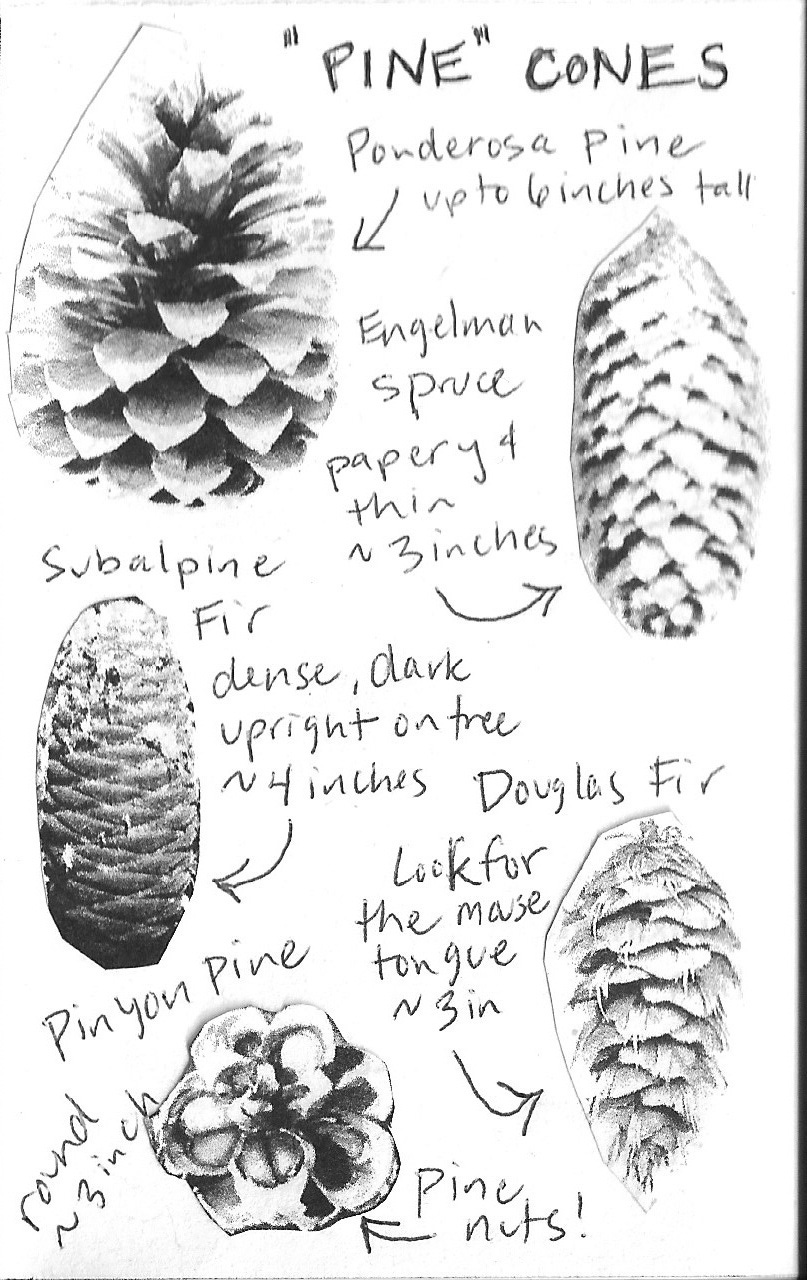 "PINE" CONES
Ponderosa Pine
up to 6 inches tall
Engelman
spruce
papery &
thin
~ 3 inches
Subalpine
Fir
dense, dark
upright on tree
~ 4 inches
Douglas Fir
Look for
the mouse
tongue
~ 3 in
Pinyon Pine
round
~ 3 inch
Pine
nuts!